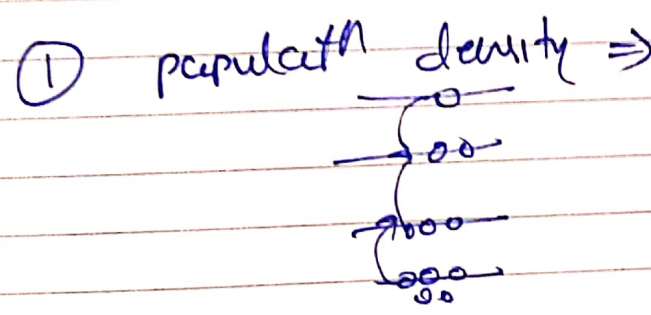 ① populatn density ⇒